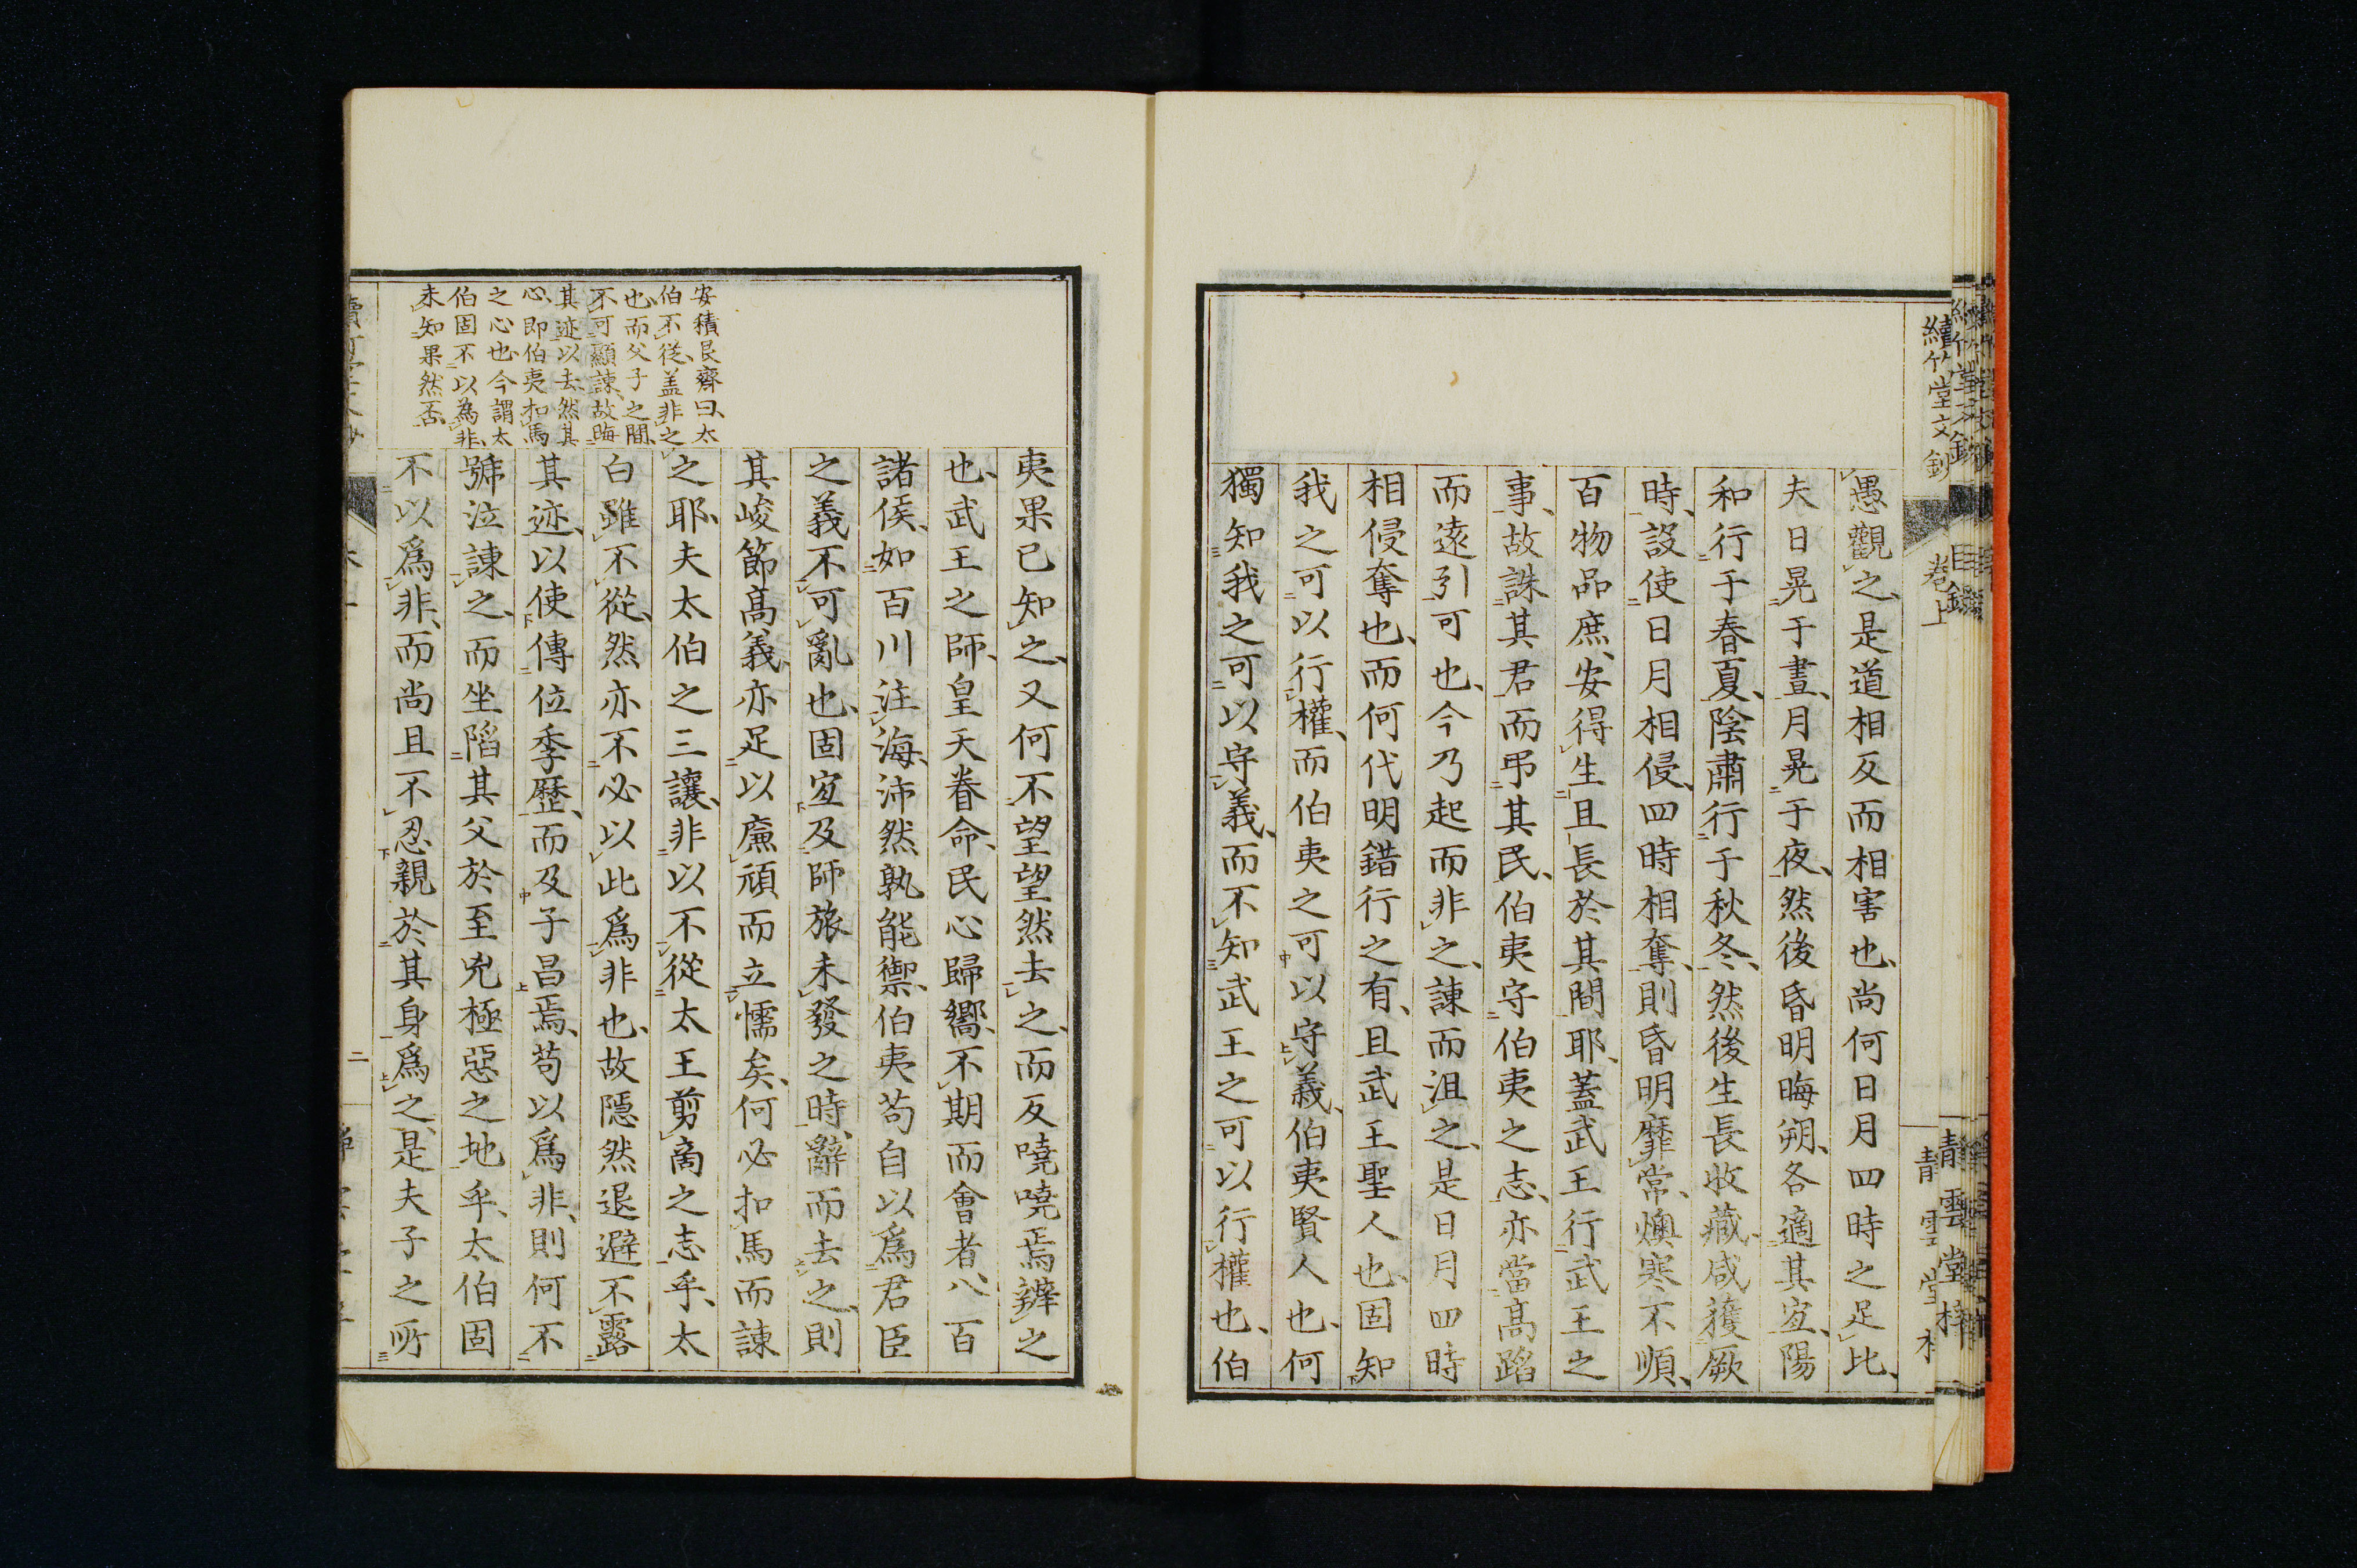 續竹堂文鈔 卷上
愚觀之是道相反而相害也尚何日月四時之足比
夫日晃于晝月晃于夜然後昏明晦朔各適其宐陽
和行于春夏陰肅行于秋冬然後生長收藏咸獲厥
時設使日月相侵四時相奪則昏明靡常燠寒不順
百物品庶安得生且長於其間耶蓋武王行武王之
事故誅其君而弔其民伯夷守伯夷之志亦當高蹈
而遠引可也今乃起而非之諫而沮之是日月四時
相侵奪也而何代明錯行之有且武王聖人也固知
我之可以行權而伯夷之可以守義伯夷賢人也何
獨知我之可以守義而不知武王之可以行權也伯
夷果已知之又何不望望然去之而反嘵嘵焉辨之
也武王之師皇天眷命民心歸嚮不期而會者八百
諸侯如百川注海沛然孰能禦伯夷苟自以爲君臣
之義不可亂也固宐及師旅未發之時辭而去之則
其峻節高義亦足以廉頑而立懦矣何必扣馬而諫
之耶夫太伯之三讓非以不從太王剪商之志乎太
白雖不從然亦不必以此爲非也故隱然退避不露
其迹以使傳位季歷而及子昌焉苟以爲非則何不
號泣諫之而坐陷其父於至兇極惡之地乎太伯固
不以爲非而尚且不忍親於其身爲之是夫子之所
安積艮齋曰太
伯不從盖非之
也而父子之間
不可顯諫故晦
其迹以去然其
心即伯夷扣馬
之心也今謂太
伯固不以為非
未知果然否
二